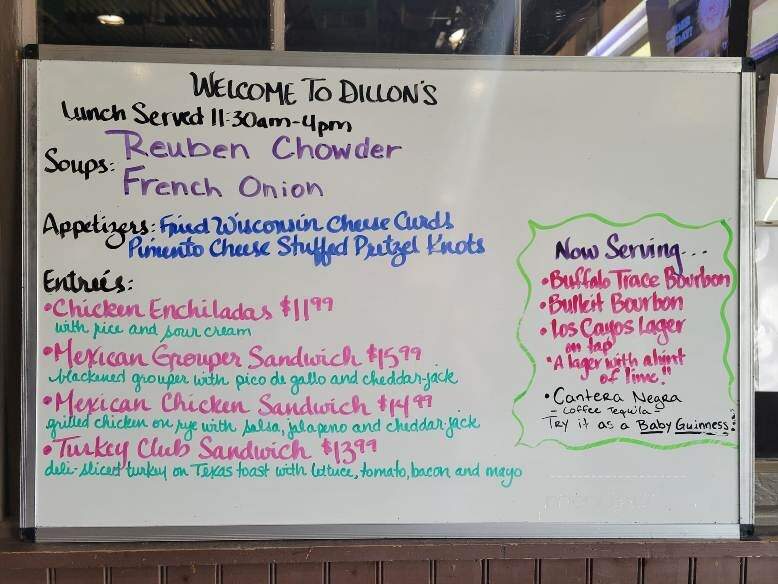 WELCOME TO DILLON'S
Lunch Served 11:30am-4pm
Soups: Reuben Chowder
French Onion
Appetizers: Fried Wisconsin Cheese Curds
Pimento Cheese Stuffed Pretzel Knots
Entreés:
•Chicken Enchiladas $11.99
with rice and sour cream
•Mexican Grouper Sandwich $15.99
blackened grouper with pico de gallo and cheddar-jack
•Mexican Chicken Sandwich $14.99
grilled chicken on rye with salsa, jalapeno and cheddar-jack
•Turkey Club Sandwich $13.99
deli-sliced turkey on Texas toast with lettuce, tomato, bacon and mayo
Now Serving...
•Buffalo Trace Bourbon
•Bulleit Bourbon
•Los Cayos Lager
on tap
"A lager with a hint
of lime."
•Cantera Negra
- Coffee Tequila -
Try it as a Baby Guinness!